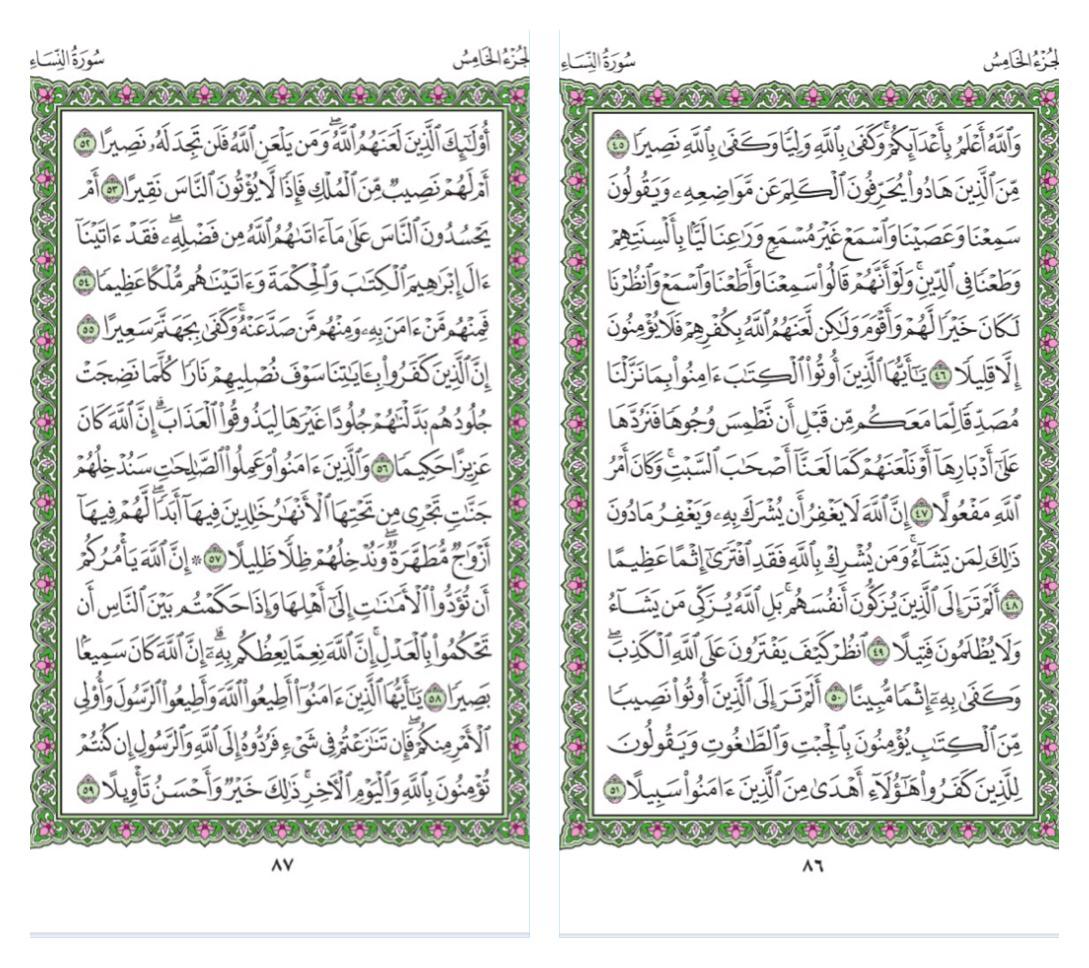 الجزء الخامس
سورة النساء
وَاللَّهُ أَعْلَمُ بِأَعْدَائِكُمْ ۚ وَكَفَىٰ بِاللَّهِ وَلِيًّا وَكَفَىٰ بِاللَّهِ نَصِيرًا ٤٥
مِّنَ الَّذِينَ هَادُوا يُحَرِّفُونَ الْكَلِمَ عَن مَّوَاضِعِهِ وَيَقُولُونَ
سَمِعْنَا وَعَصَيْنَا وَاسْمَعْ غَيْرَ مُسْمَعٍ وَرَاعِنَا لَيًّا بِأَلْسِنَتِهِمْ
وَطَعْنًا فِي الدِّينِ ۚ وَلَوْ أَنَّهُمْ قَالُوا سَمِعْنَا وَأَطَعْنَا وَاسْمَعْ وَانظُرْنَا
لَكَانَ خَيْرًا لَّهُمْ وَأَقْوَمَ وَلَٰكِن لَّعَنَهُمُ اللَّهُ بِكُفْرِهِمْ فَلَا يُؤْمِنُونَ
إِلَّا قَلِيلًا ٤٦ يَا أَيُّهَا الَّذِينَ أُوتُوا الْكِتَابَ آمِنُوا بِمَا نَزَّلْنَا
مُصَدِّقًا لِّمَا مَعَكُم مِّن قَبْلِ أَن نَّطْمِسَ وُجُوهًا فَنَرُدَّهَا
عَلَىٰ أَدْبَارِهَا أَوْ نَلْعَنَهُمْ كَمَا لَعَنَّا أَصْحَابَ السَّبْتِ ۚ وَكَانَ أَمْرُ
اللَّهِ مَفْعُولًا ٤٧ إِنَّ اللَّهَ لَا يَغْفِرُ أَن يُشْرَكَ بِهِ وَيَغْفِرُ مَا دُونَ
ذَٰلِكَ لِمَن يَشَاءُ ۚ وَمَن يُشْرِكْ بِاللَّهِ فَقَدِ افْتَرَىٰ إِثْمًا عَظِيمًا
٤٨ أَلَمْ تَرَ إِلَى الَّذِينَ يُزَكُّونَ أَنفُسَهُم ۚ بَلِ اللَّهُ يُزَكِّي مَن يَشَاءُ
وَلَا يُظْلَمُونَ فَتِيلًا ٤٩ انظُرْ كَيْفَ يَفْتَرُونَ عَلَى اللَّهِ الْكَذِبَ ۖ
وَكَفَىٰ بِهِ إِثْمًا مُّبِينًا ٥٠ أَلَمْ تَرَ إِلَى الَّذِينَ أُوتُوا نَصِيبًا
مِّنَ الْكِتَابِ يُؤْمِنُونَ بِالْجِبْتِ وَالطَّاغُوتِ وَيَقُولُونَ
لِلَّذِينَ كَفَرُوا هَٰؤُلَاءِ أَهْدَىٰ مِنَ الَّذِينَ آمَنُوا سَبِيلًا ٥١
٨٦
الجزء الخامس
سورة النساء
أُولَٰئِكَ الَّذِينَ لَعَنَهُمُ اللَّهُ ۖ وَمَن يَلْعَنِ اللَّهُ فَلَن تَجِدَ لَهُ نَصِيرًا ٥٢
أَمْ لَهُمْ نَصِيبٌ مِّنَ الْمُلْكِ فَإِذًا لَّا يُؤْتُونَ النَّاسَ نَقِيرًا ٥٣ أَمْ
يَحْسُدُونَ النَّاسَ عَلَىٰ مَا آتَاهُمُ اللَّهُ مِن فَضْلِهِ ۖ فَقَدْ آتَيْنَا
آلَ إِبْرَاهِيمَ الْكِتَابَ وَالْحِكْمَةَ وَآتَيْنَاهُم مُّلْكًا عَظِيمًا ٥٤
فَمِنْهُم مَّنْ آمَنَ بِهِ وَمِنْهُم مَّن صَدَّ عَنْهُ ۚ وَكَفَىٰ بِجَهَنَّمَ سَعِيرًا ٥٥
إِنَّ الَّذِينَ كَفَرُوا بِآيَاتِنَا سَوْفَ نُصْلِيهِمْ نَارًا كُلَّمَا نَضِجَتْ
جُلُودُهُم بَدَّلْنَاهُمْ جُلُودًا غَيْرَهَا لِيَذُوقُوا الْعَذَابَ ۗ إِنَّ اللَّهَ كَانَ
عَزِيزًا حَكِيمًا ٥٦ وَالَّذِينَ آمَنُوا وَعَمِلُوا الصَّالِحَاتِ سَنُدْخِلُهُمْ
جَنَّاتٍ تَجْرِي مِن تَحْتِهَا الْأَنْهَارُ خَالِدِينَ فِيهَا أَبَدًا ۖ لَّهُمْ فِيهَا
أَزْوَاجٌ مُّطَهَّرَةٌ ۖ وَنُدْخِلُهُمْ ظِلًّا ظَلِيلًا ٥٧ ۞ إِنَّ اللَّهَ يَأْمُرُكُمْ
أَن تُؤَدُّوا الْأَمَانَاتِ إِلَىٰ أَهْلِهَا وَإِذَا حَكَمْتُم بَيْنَ النَّاسِ أَن
تَحْكُمُوا بِالْعَدْلِ ۚ إِنَّ اللَّهَ نِعِمَّا يَعِظُكُم بِهِ ۗ إِنَّ اللَّهَ كَانَ سَمِيعًا
بَصِيرًا ٥٨ يَا أَيُّهَا الَّذِينَ آمَنُوا أَطِيعُوا اللَّهَ وَأَطِيعُوا الرَّسُولَ وَأُولِي
الْأَمْرِ مِنكُمْ ۖ فَإِن تَنَازَعْتُمْ فِي شَيْءٍ فَرُدُّوهُ إِلَى اللَّهِ وَالرَّسُولِ إِن كُنتُمْ
تُؤْمِنُونَ بِاللَّهِ وَالْيَوْمِ الْآخِرِ ۚ ذَٰلِكَ خَيْرٌ وَأَحْسَنُ تَأْوِيلًا ٥٩
٨٧